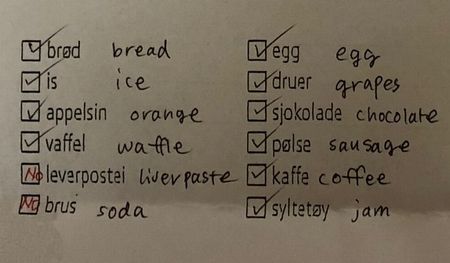 brød bread
is ice
appelsin orange
vaffel waffle
No leverpostei liverpaste
No brus soda
egg egg
druer grapes
sjokolade chocolate
pølse sausage
kaffe coffee
syltetøy jam